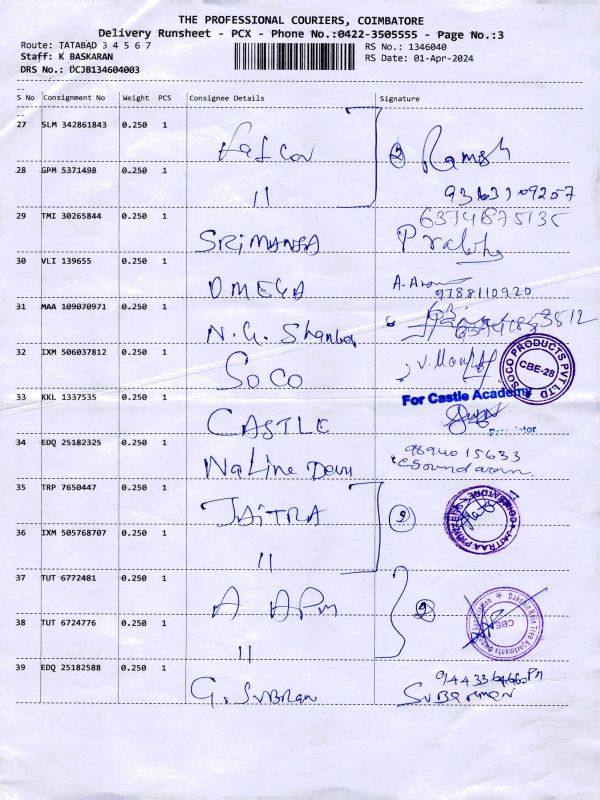 THE PROFESSIONAL COURIERS, COIMBATORE
Delivery Runsheet - PCX - Phone No.:0422-3505555 - Page No.:3
Route: TATABAD 3 4 5 6 7
RS No.: 1346040
Staff: K BASKARAN
RS Date: 01-Apr-2024
DRS No.: DCJB134604003
S No Consignment No Weight PCS Consignee Details Signature
27 SLM 342861843 0.250 1 Falcon 2 Ramesh
28 GPM 5371498 0.250 1 11 9363109257
29 TMI 30265844 0.250 1 SRIMANSA 6374875135
30 VLI 139655 0.250 1 OMEGA 9788110920
31 MAA 109070971 0.250 1 N.G. Shankar
32 IXM 506037812 0.250 1 SOCO
SOCO PRODUCTS PVT LTD
CBE-28
33 KKL 1337535 0.250 1 CASTLE For Castle Academy
Proprietor
34 EDQ 25182325 0.250 1 Naline Devi 9894015633
Csoundaram
35 TRP 7650447 0.250 1 JAITRA 2
36 IXM 505768707 0.250 1 11
37 TUT 6772481 0.250 1 A APM 2
38 TUT 6724776 0.250 1 11
CBE
39 EDQ 25182588 0.250 1 G. SUBRAM